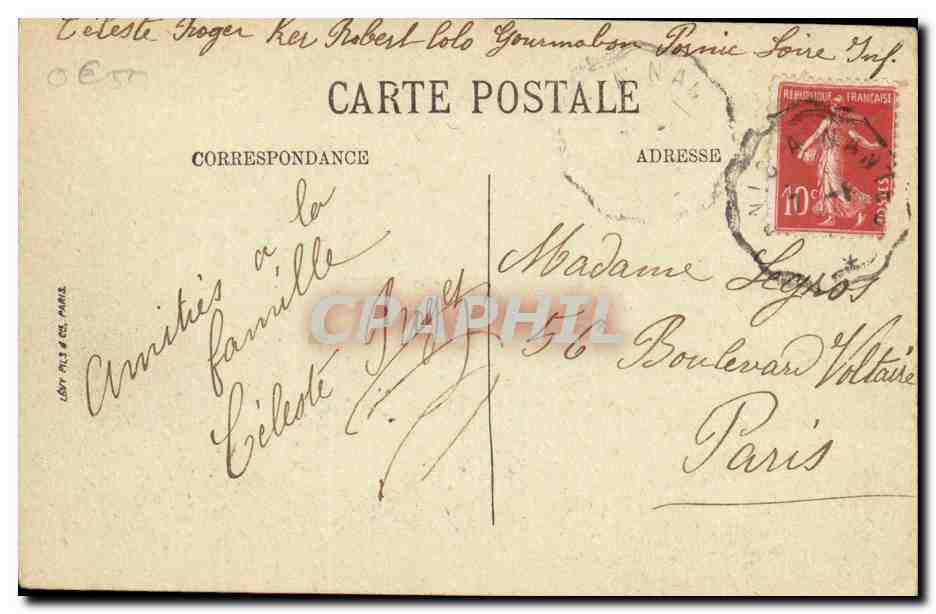 Céleste Froger Ker Robert Colo Gourmalon Pornic Loire Inf.
0 € 55
CARTE POSTALE
CORRESPONDANCE
ADRESSE
REPUBLIQUE FRANÇAISE
10c
POSTES
Amitiés à la
famille
Céleste
Madame Legros
56 Boulevard Voltaire
Paris
LÉVY FILS & CIE, PARIS.
CPAPHIL